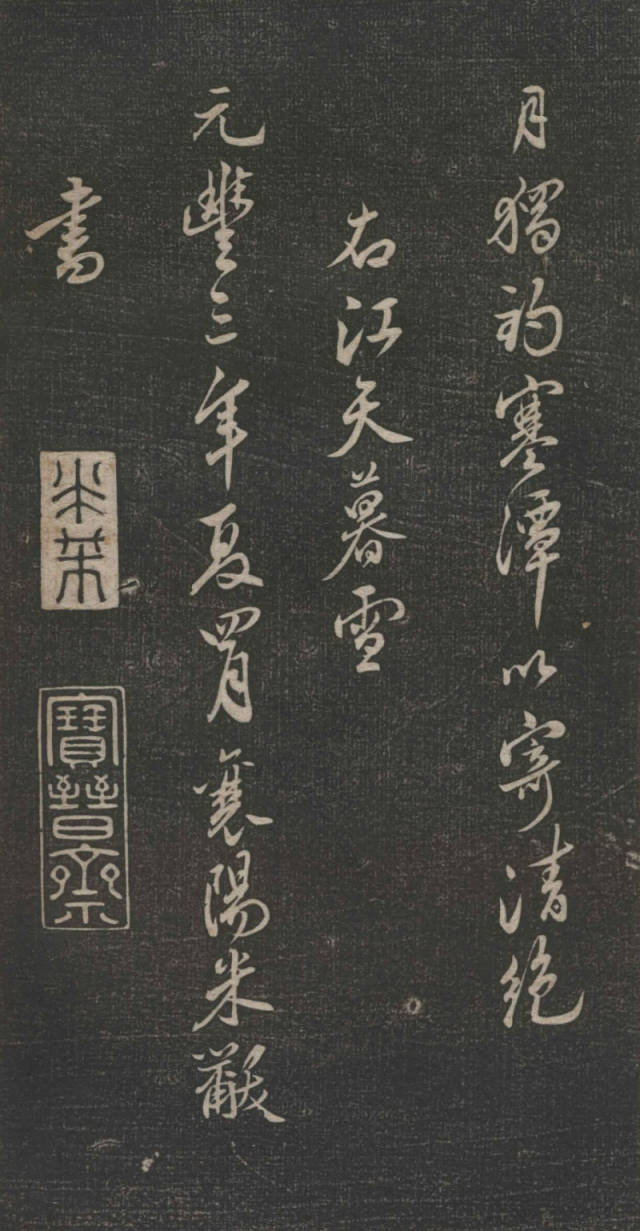 月獨釣寒潭以寄清絶
右江天暮雪
元豐三年夏四月襄陽米黻
書
米芾
寶晉齋